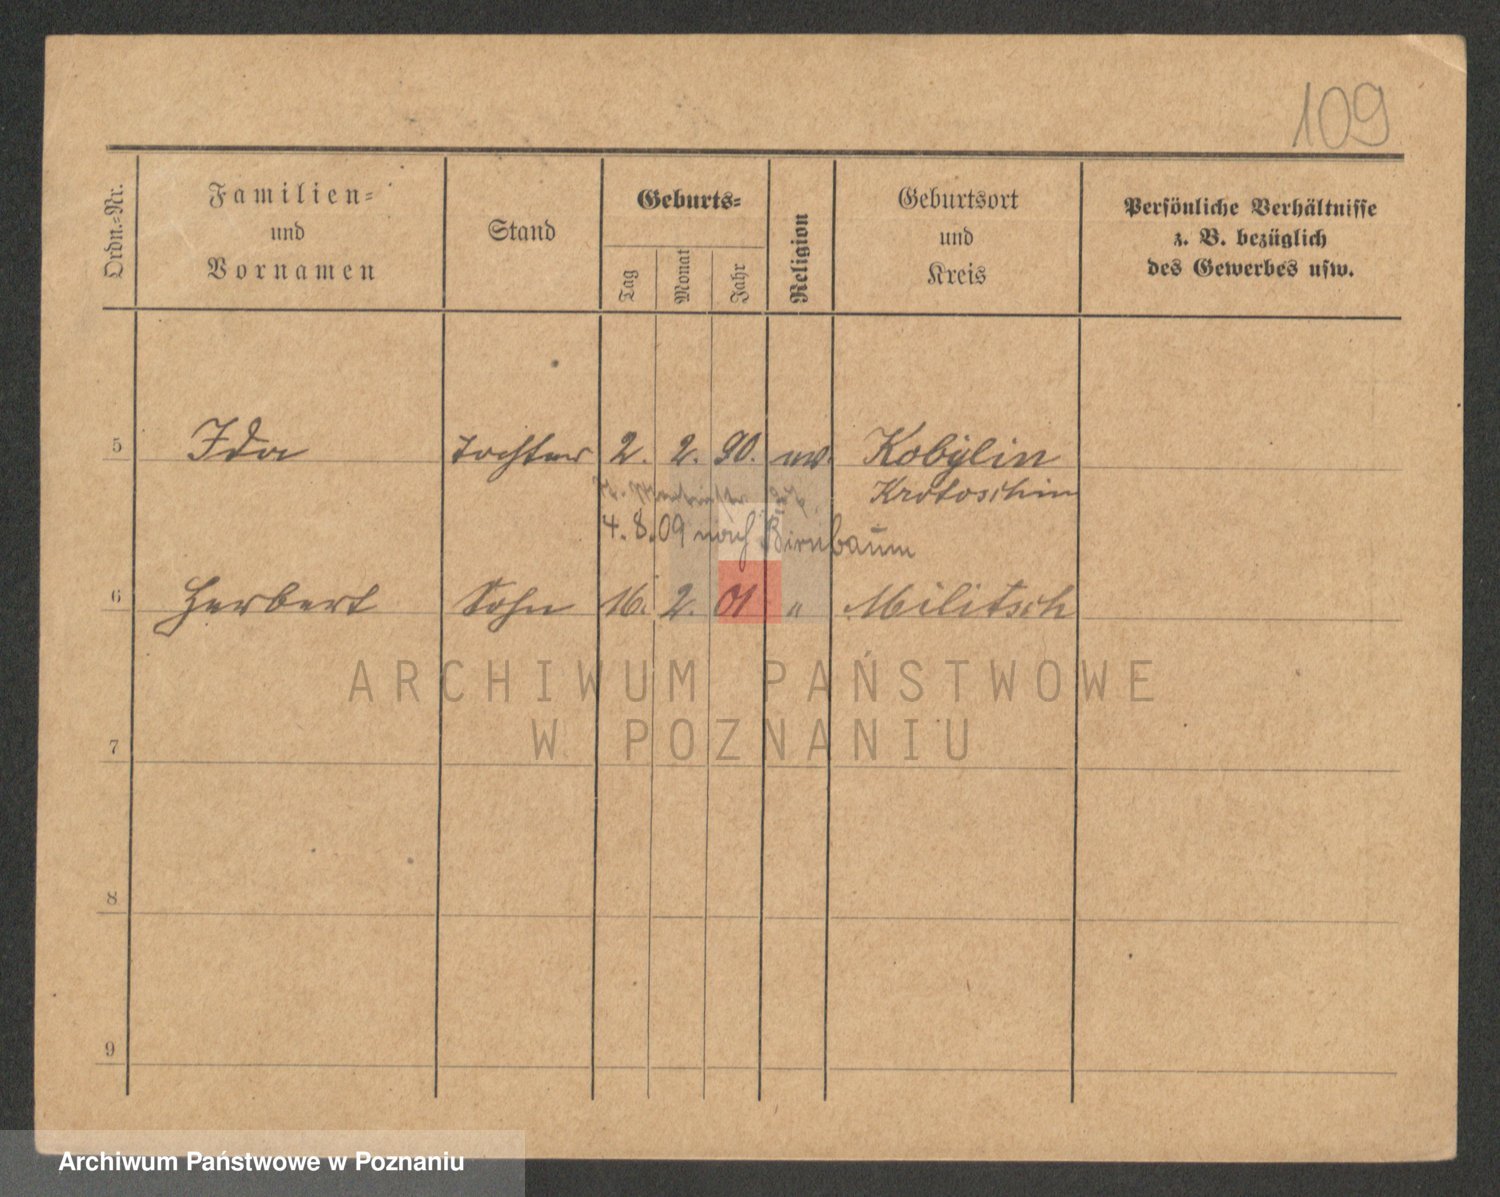 109
Ordn.-Nr.
Familien-
und
Vornamen
Stand
Geburts-
Tag
Monat
Jahr
Religion
Geburtsort
und
Kreis
Persönliche Verhältnisse
z. B. bezüglich
des Gewerbes usw.
5 Ida Tochter 2. 2. 90. ev. Kobylin
Krotoschin
4. 8. 09 nach Birnbaum
6 Herbert Sohn 16. 2. 01. " Militsch
7
8
9
ARCHIWUM PAŃSTWOWE
W POZNANIU
Archiwum Państwowe w Poznaniu